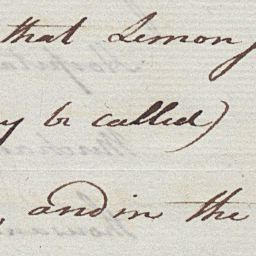 that Lemon
y be called)
, and in the